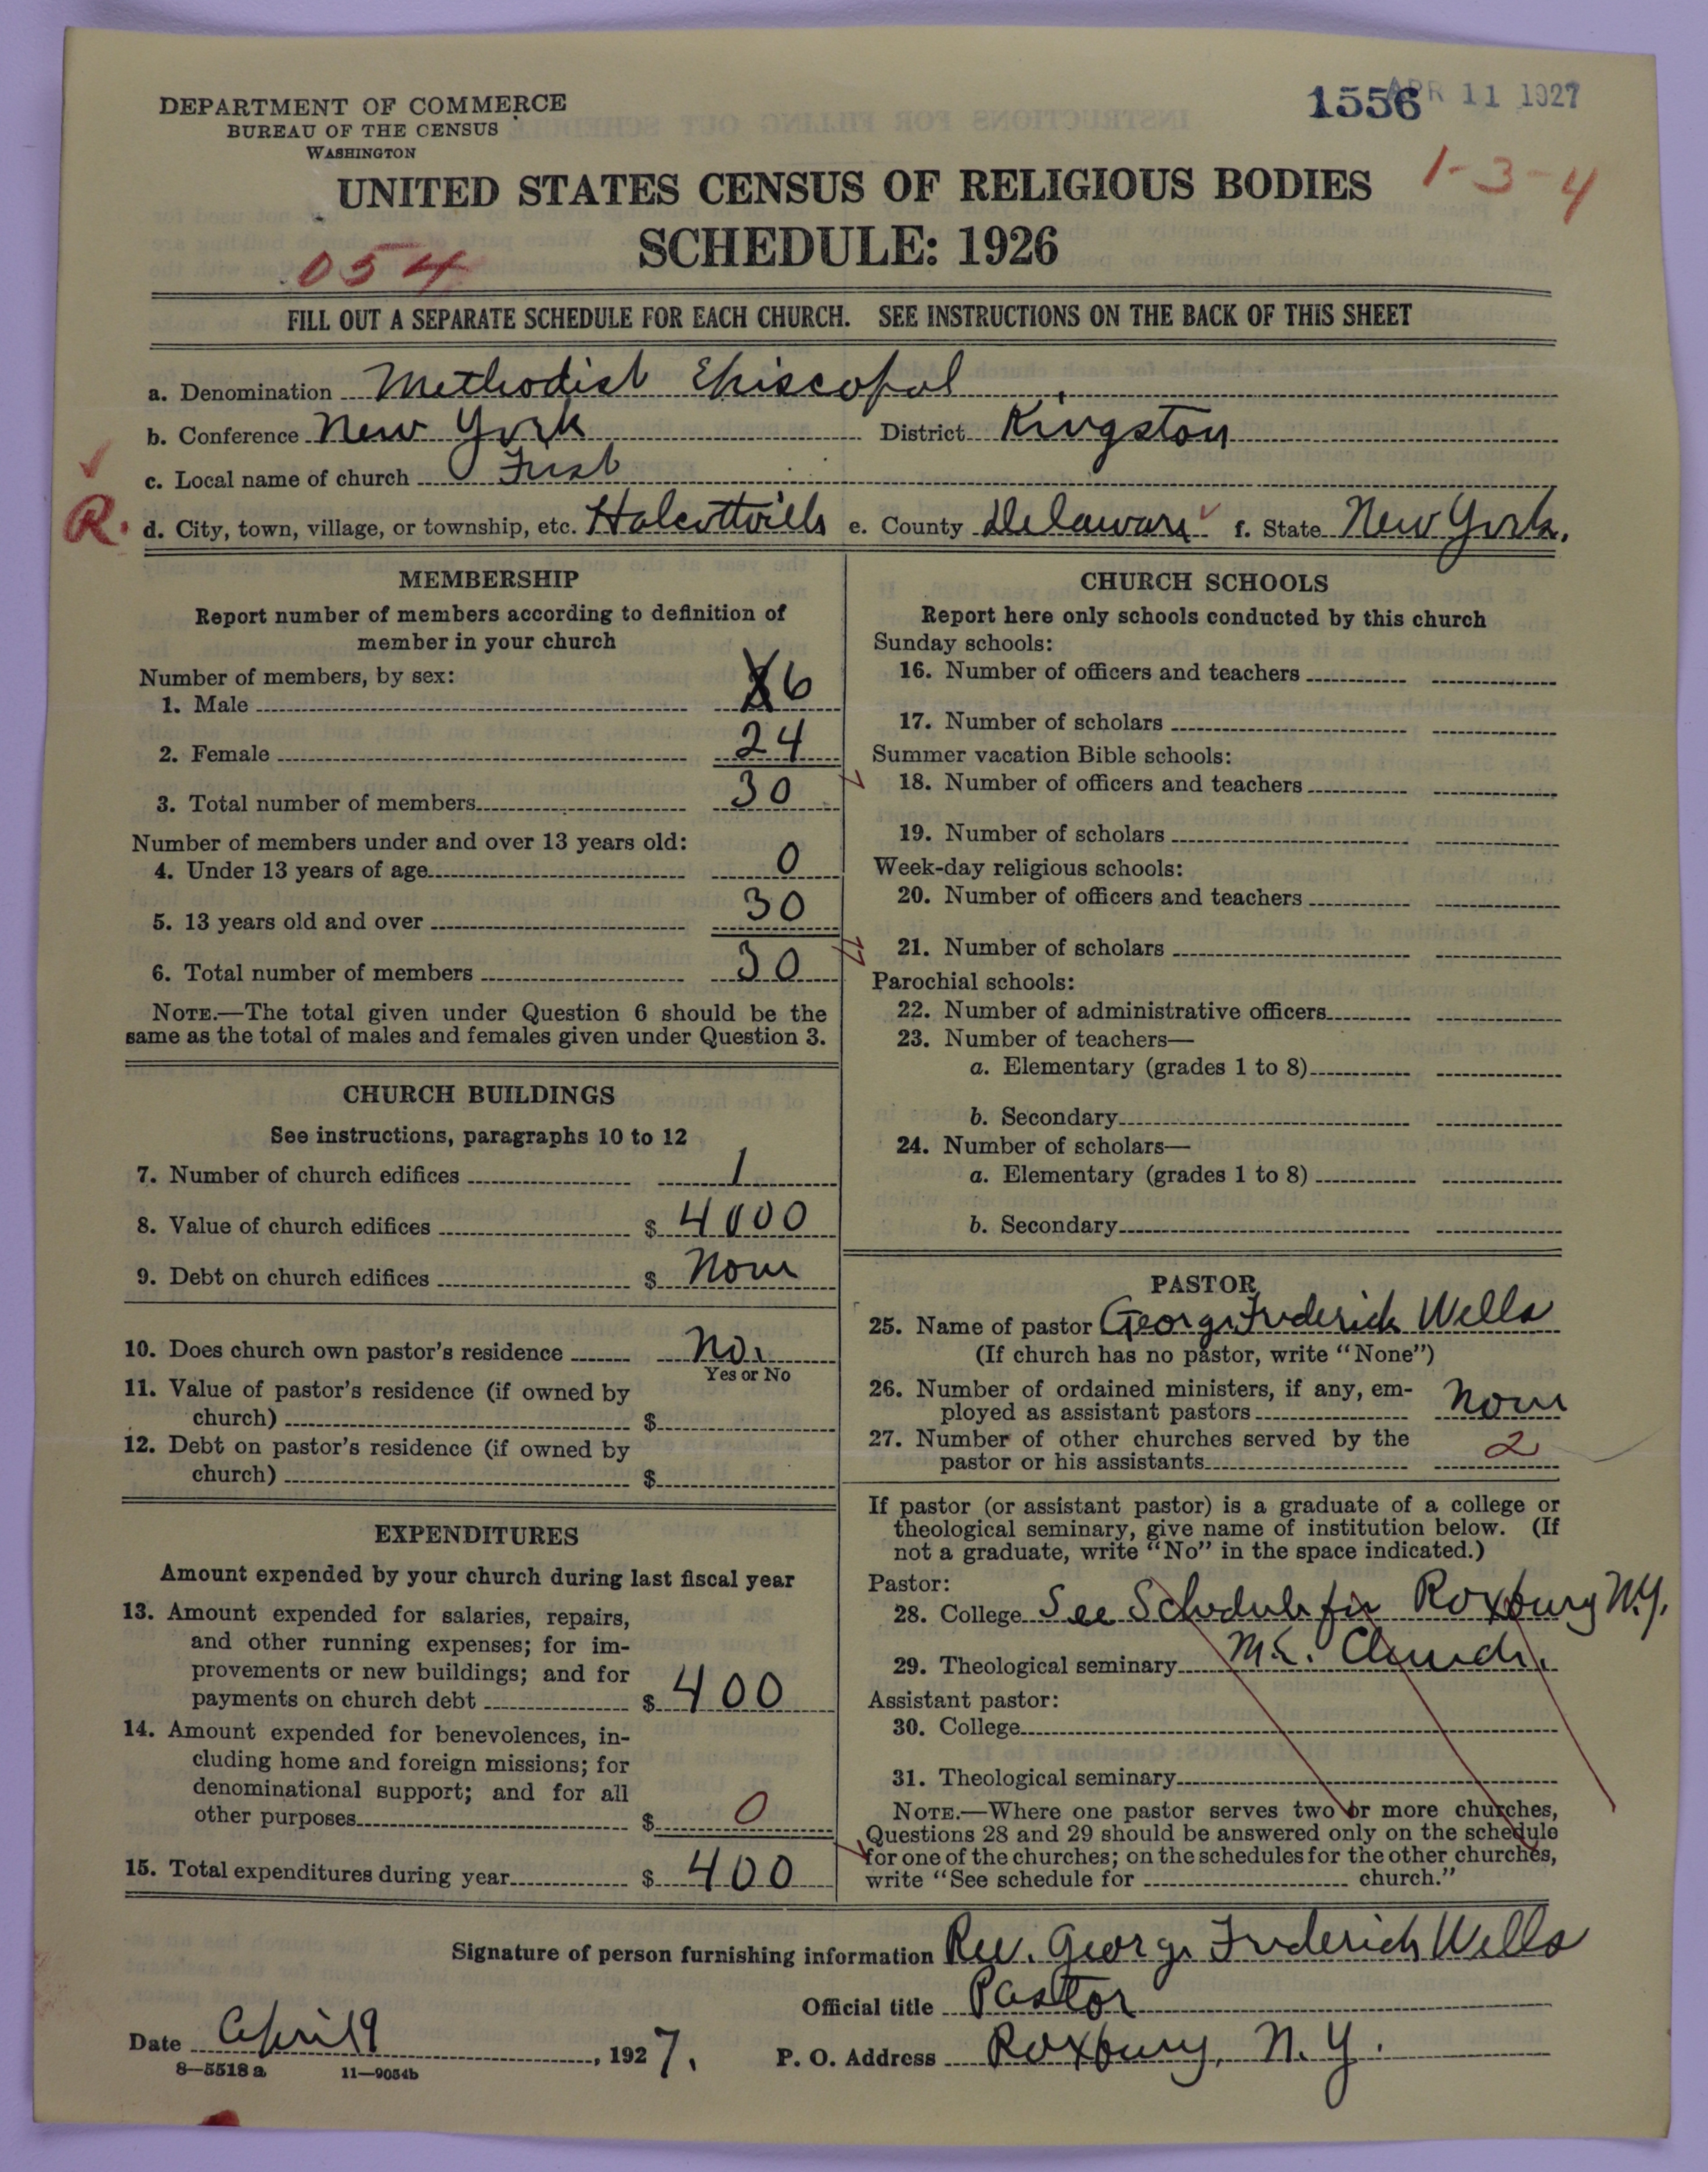 DEPARTMENT OF COMMERCE
BUREAU OF THE CENSUS
WASHINGTON
1556
APR 11 1927
1-3-4
UNITED STATES CENSUS OF RELIGIOUS BODIES
SCHEDULE: 1926
054
FILL OUT A SEPARATE SCHEDULE FOR EACH CHURCH. SEE INSTRUCTIONS ON THE BACK OF THIS SHEET
a. Denomination Methodist Episcopal
b. Conference New York District Kingston
c. Local name of church First
R. d. City, town, village, or township, etc. Halcottville e. County Delaware f. State New York.
MEMBERSHIP
Report number of members according to definition of
member in your church
Number of members, by sex:
1. Male 6
2. Female 24
3. Total number of members 30
Number of members under and over 13 years old:
4. Under 13 years of age 0
5. 13 years old and over 30
6. Total number of members 30
NOTE.—The total given under Question 6 should be the
same as the total of males and females given under Question 3.
CHURCH BUILDINGS
See instructions, paragraphs 10 to 12
7. Number of church edifices 1
8. Value of church edifices $ 4000
9. Debt on church edifices $ None
10. Does church own pastor's residence No.
Yes or No
11. Value of pastor's residence (if owned by
church) $
12. Debt on pastor's residence (if owned by
church) $
EXPENDITURES
Amount expended by your church during last fiscal year
13. Amount expended for salaries, repairs,
and other running expenses; for im-
provements or new buildings; and for
payments on church debt $ 400
14. Amount expended for benevolences, in-
cluding home and foreign missions; for
denominational support; and for all
other purposes $ 0
15. Total expenditures during year $ 400
CHURCH SCHOOLS
Report here only schools conducted by this church
Sunday schools:
16. Number of officers and teachers
17. Number of scholars
Summer vacation Bible schools:
18. Number of officers and teachers
19. Number of scholars
Week-day religious schools:
20. Number of officers and teachers
21. Number of scholars
Parochial schools:
22. Number of administrative officers
23. Number of teachers—
a. Elementary (grades 1 to 8)
b. Secondary
24. Number of scholars—
a. Elementary (grades 1 to 8)
b. Secondary
PASTOR
25. Name of pastor George Frederick Wells
(If church has no pastor, write "None")
26. Number of ordained ministers, if any, em-
ployed as assistant pastors None
27. Number of other churches served by the
pastor or his assistants 2
If pastor (or assistant pastor) is a graduate of a college or
theological seminary, give name of institution below. (If
not a graduate, write "No" in the space indicated.)
Pastor:
28. College See Schedule for Roxbury N.Y.
29. Theological seminary M.E. Church.
Assistant pastor:
30. College
31. Theological seminary
NOTE.—Where one pastor serves two or more churches,
Questions 28 and 29 should be answered only on the schedule
for one of the churches; on the schedules for the other churches,
write "See schedule for church."
Signature of person furnishing information Rev. George Frederick Wells
Official title Pastor
Date April 9, 1927.
P. O. Address Roxbury, N. Y.
8—5518 a 11—9054b